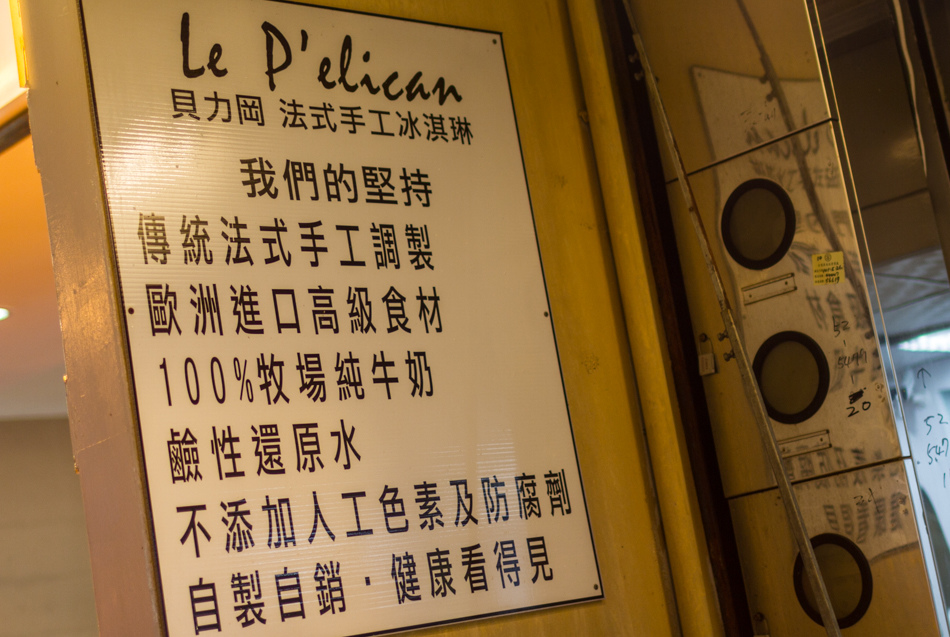 Le P'elican
貝力岡 法式手工冰淇琳
我們的堅持
傳統法式手工調製
歐洲進口高級食材
100%牧場純牛奶
鹼性還原水
不添加人工色素及防腐劑
自製自銷·健康看得見
52
20
52
547